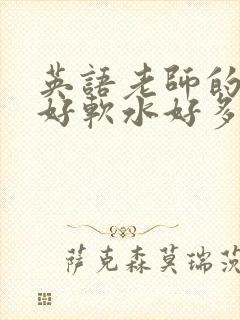 英語老師的
好軟水好多
萨克森莫瑞茨